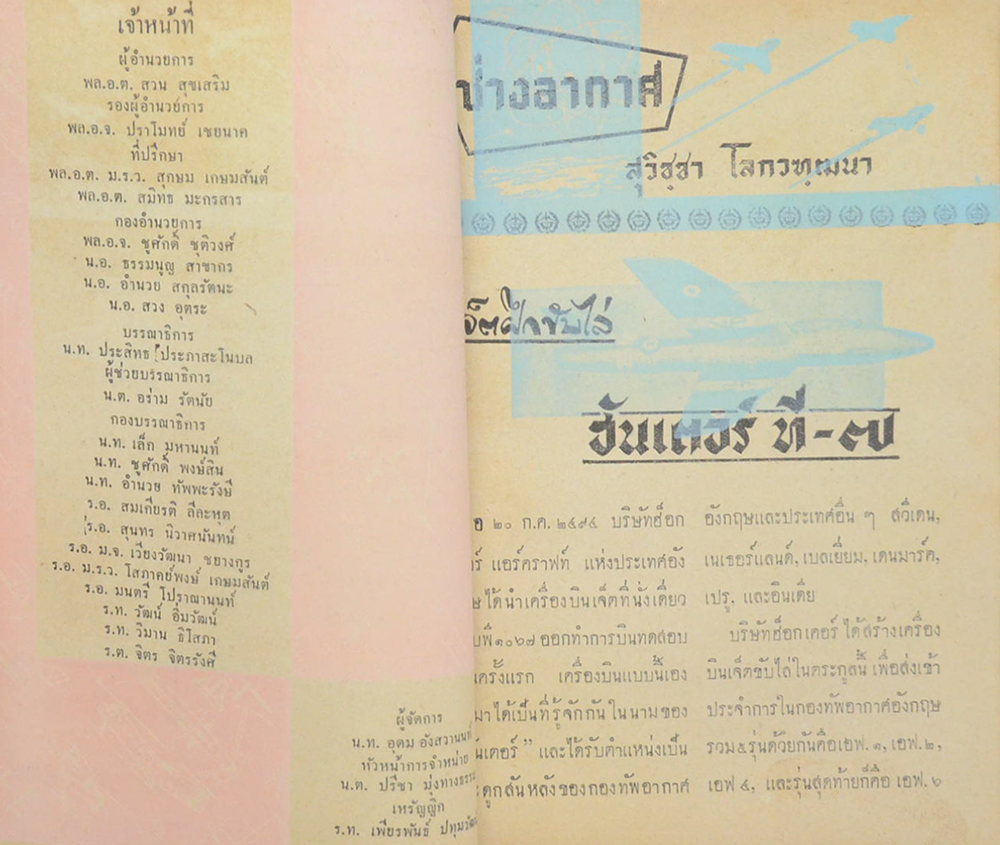 เจ้าหน้าที่
ผู้อำนวยการ
พล.อ.ต. สวน สุขเสริม
รองผู้อำนวยการ
พล.อ.จ. ปราโมทย์ เชยนาค
ที่ปรึกษา
พล.อ.ต. ม.ร.ว. สุกษม เกษมสันต์
พล.อ.ต. สมิทธ มะกรสาร
กองอำนวยการ
พล.อ.จ. ชูศักดิ์ ชุติวงศ์
น.อ. ธรรมนูญ สาขากร
น.อ. อำนวย สกุลรัตนะ
น.อ. สวง อุตระ
บรรณาธิการ
น.ท. ประสิทธ ประภาสะโนบล
ผู้ช่วยบรรณาธิการ
น.ต. อร่าม รัตนัย
กองบรรณาธิการ
น.ท. เล็ก มหานนท์
น.ท. ชูศักดิ์ พงษ์สิน
น.ท. อำนวย ทัพพะรังษี
ร.อ. สมเกียรติ ลีละหุต
ร.อ. สุนทร นิวาศนันทน์
ร.อ. ม.จ. เวียงวัฒนา ชยางกูร
ร.อ. ม.ร.ว. โสภาคย์พงษ์ เกษมสันต์
ร.อ. มนตรี โปราณานนท์
ร.ท. วัฒน์ อิ่มวัฒน์
ร.ท. วิมาน ธิโสภา
ร.ต. จิตร จิตรรังศี
ผู้จัดการ
น.ท. อุดม อังสวานนท์
หัวหน้าการจำหน่าย
น.ต. ปรีชา มุ่งทางธรรม
เหรัญญิก
ร.ท. เพียรพันธ์
ช่างอากาศ
สุวิชฺชา โลกวฑฺฒนา
เจ็ตฝึกขับไล่
ฮันเตอร์ ที-๗
๒๐ ก.ค. ๒๔๙๔ บริษัทฮ็อก
ร์ แอร์คราฟท์ แห่งประเทศอัง
ษ ได้นำเครื่องบินเจ็ตที่นั่งเดี่ยว
บพี ๑๐๖๗ ออกทำการบินทดสอบ
นครั้งแรก เครื่องบินแบบนี้เอง
มา ได้เป็นที่รู้จักกันในนามของ
นเตอร์” และได้รับตำแหน่งเป็น
ดูกสันหลังของกองทัพอากาศ
อังกฤษและประเทศอื่น ๆ สวีเดน,
เนเธอร์แลนด์, เบลเยี่ยม, เดนมาร์ค,
เปรู, และอินเดีย
บริษัทฮ็อกเคอร์ ได้สร้างเครื่อง
บินเจ็ดขับไล่ในตระกูลนี้ เพื่อส่งเข้า
ประจำการในกองทัพอากาศอังกฤษ
รวม ๕ รุ่นด้วยกันคือ เอฟ. ๑, เอฟ. ๒,
เอฟ ๔, และรุ่นสุดท้ายก็คือ เอฟ. ๖